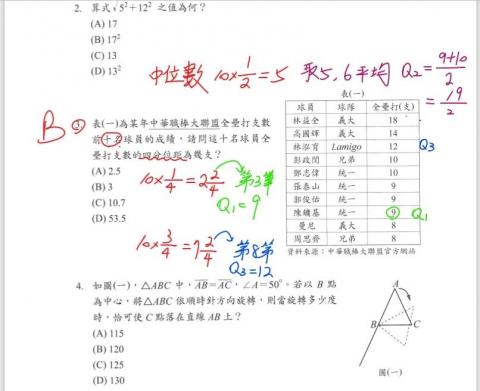 2. 算式√5²+12² 之值為何?
(A) 17
(B) 17²
(C) 13
(D) 13²
中位數 10×1/2=5 取5,6平均 Q2=9+10/2
=19/2
B
3. 表(一)為某年中華職棒大聯盟全壘打支數
前十名球員的成績,請問這十名球員全
壘打支數的四分位距為幾支?
(A) 2.5
(B) 3
(C) 10.7
(D) 53.5
10×1/4=2 2/4 第3筆
Q1=9
10×3/4=7 2/4 第8筆
Q3=12
表(一)
球員 球隊 全壘打(支)
林益全 義大 18
高國輝 義大 14
林泓育 Lamigo 12 Q3
彭政閔 兄弟 10
鄧志偉 統一 10
張泰山 統一 9
郭俊佑 統一 9
陳鏞基 統一 9 Q1
曼尼 義大 8
周思齊 兄弟 8
資料來源:中華職棒大聯盟官方網站
4. 如圖(一),△ABC 中,AB=AC,∠A=50°。若以 B 點
為中心,將△ABC 依順時針方向旋轉,則當旋轉多少度
時,恰可使 C 點落在直線 AB 上?
(A) 115
(B) 120
(C) 125
(D) 130
A
B
C
圖(一)